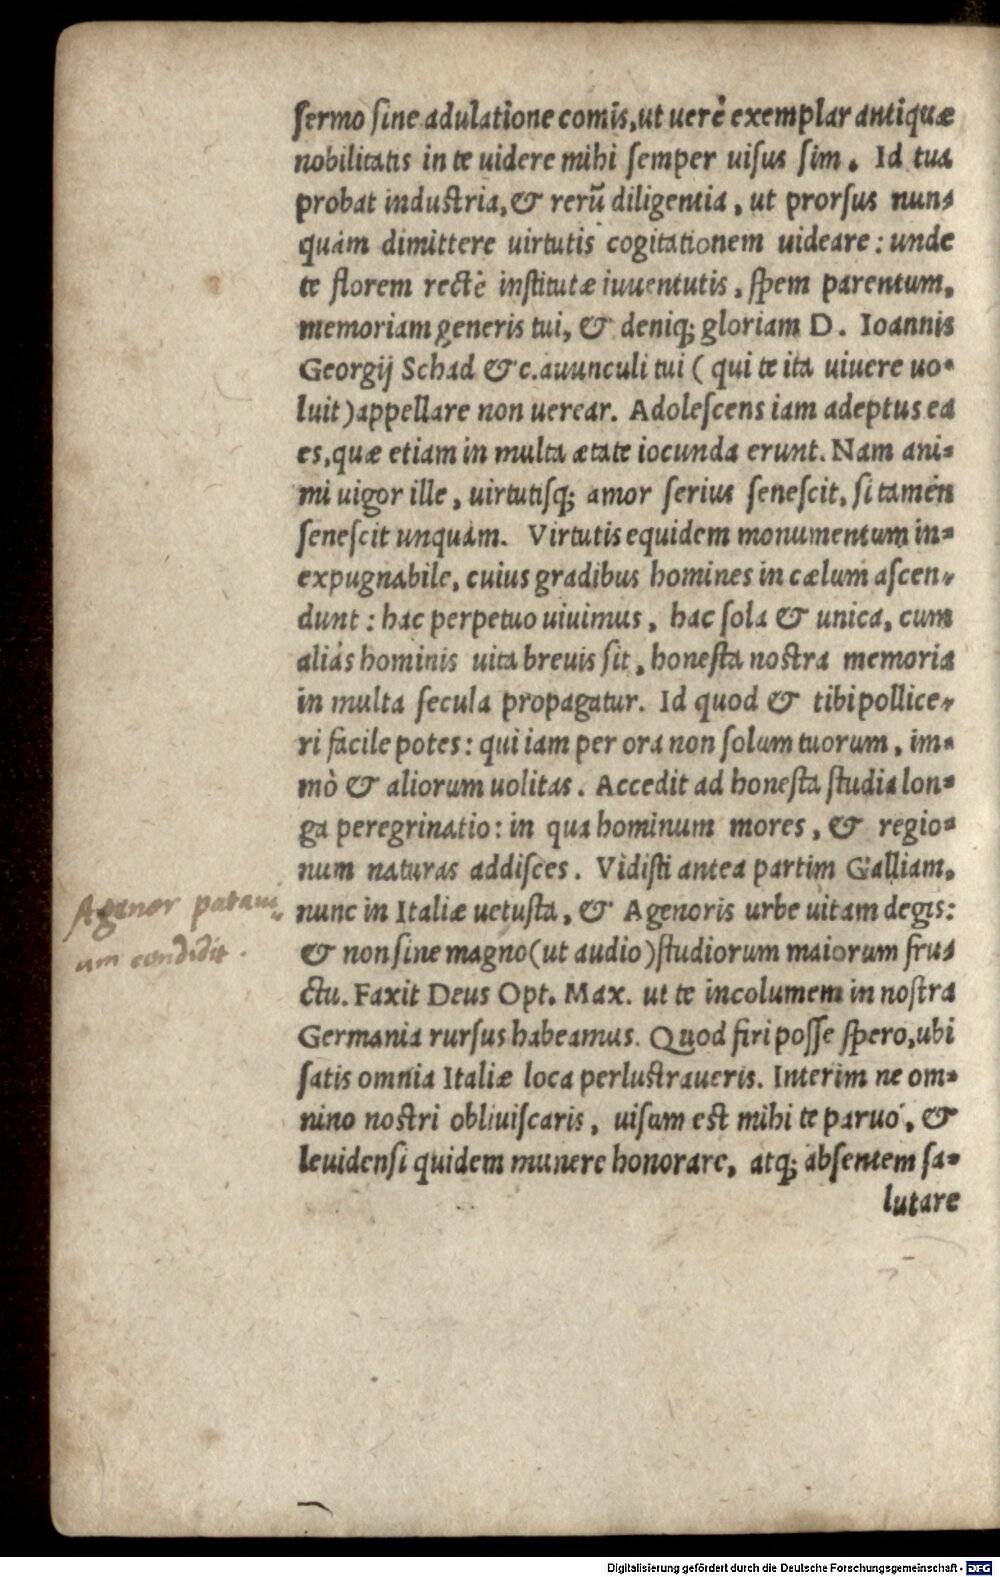 sermo sine adulatione comis, ut uerè exemplar antiquæ
nobilitatis in te uidere mihi semper uisus sim. Id tua
probat industria, & rerū diligentia, ut prorsus nun-
quàm dimittere uirtutis cogitationem uideare: unde
te florem rectè institutæ iuuentutis, spem parentum,
memoriam generis tui, & deniq; gloriam D. Ioannis
Georgij Schad &c. auunculi tui (qui te ita uiuere uo-
luit) appellare non uerear. Adolescens iam adeptus ea
es, quæ etiam in multa ætate iocunda erunt. Nam ani-
mi uigor ille, uirtutisq; amor serius senescit, si tamen
senescit unquàm. Virtutis equidem monumentum in-
expugnabile, cuius gradibus homines in cælum ascen-
dunt: hac perpetuo uiuimus, hac sola & unica, cum
aliás hominis uita breuis sit, honesta nostra memoria
in multa secula propagatur. Id quod & tibi pollice-
ri facile potes: qui iam per ora non solum tuorum, im-
mò & aliorum uolitas. Accedit ad honesta studia lon-
ga peregrinatio: in qua hominum mores, & regio-
num naturas addisces. Vidisti antea partim Galliam,
nunc in Italiæ uetusta, & Agenoris urbe uitam degis:
& non sine magno (ut audio) studiorum maiorum fru-
ctu. Faxit Deus Opt. Max. ut te incolumem in nostra
Germania rursus habeamus. Quod firi posse spero, ubi
satis omnia Italiæ loca perlustraueris. Interim ne om-
nino nostri obliuiscaris, uisum est mihi te paruo, &
leuidensi quidem munere honorare, atq; absentem sa-
lutare
Agenor pataui-
um condidit.
Digitalisierung gefördert durch die Deutsche Forschungsgemeinschaft - DFG